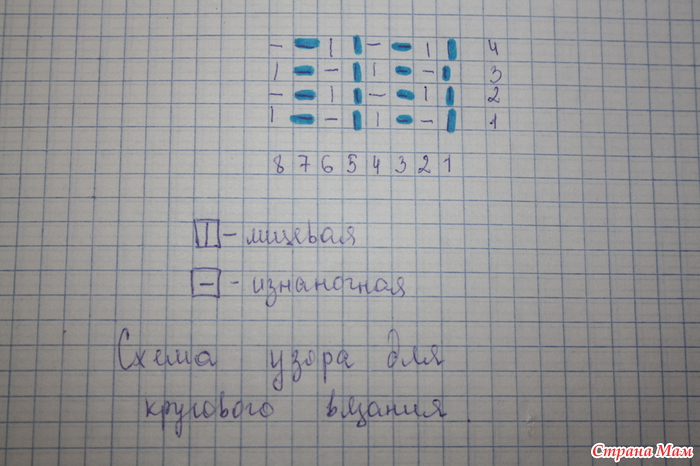 — — | | — — | | 4
| — — | | — — | 3
— — | | — — | | 2
| — — | | — — | 1
8 7 6 5 4 3 2 1
| - лицевая
— - изнаночная
Схема узора для
кругового вязания
Страна Мам